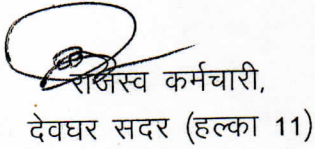 राजस्व कर्मचारी,
देवघर सदर (हल्का 11)